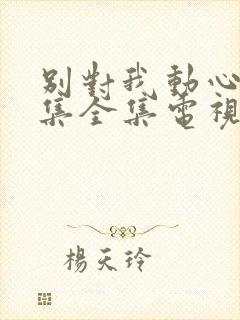 別對我動心
集全集電視
楊天玲